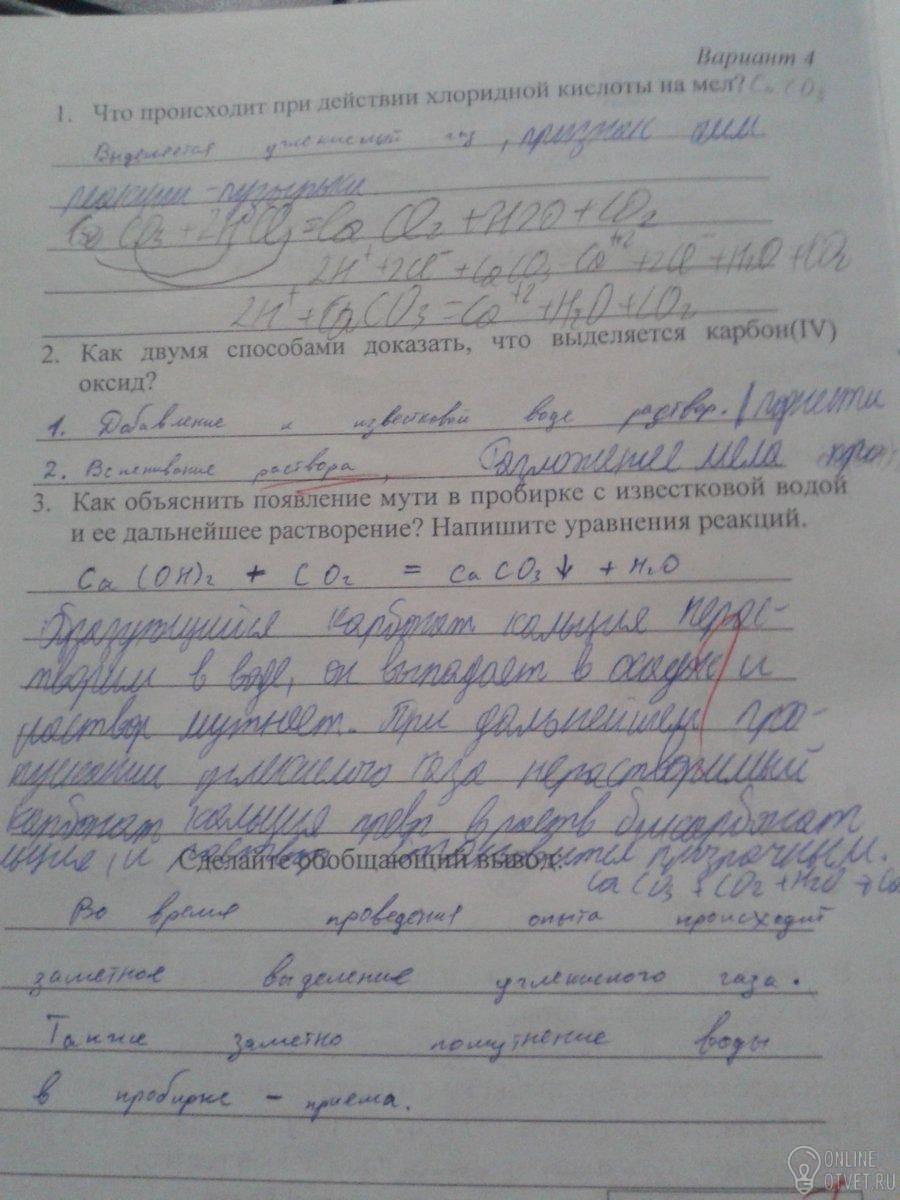 Вариант 4
1. Что происходит при действии хлоридной кислоты на мел? CaCO3
Выделяется углекислый газ, признак хим
реакции - пузырьки
2H⁺ + 2Cl⁻ + CaCO3 = Ca⁺² + 2Cl⁻ + H2O + CO2
2H⁺ + CaCO3 = Ca⁺² + H2O + CO2
2. Как двумя способами доказать, что выделяется карбон(IV)
оксид?
1. Добавление к известковой воде раствор. поднести
2. Вспенивание раствора, Разложение мела
3. Как объяснить появление мути в пробирке с известковой водой
и ее дальнейшее растворение? Напишите уравнения реакций.
Ca(OH)2 + CO2 = CaCO3↓ + H2O
Образующийся карбонат кальция нерас-
творим в воде, он выпадает в осадок и
раствор мутнеет. При дальнейшем про-
пускании углекислого газа нерастворимый
карбонат кальция прев в раств бикарбонат
и раствор становится прозрачным.
Сделайте обобщающий вывод:
CaCO3 + CO2 + H2O → Ca
Во время проведения опыта происходит
заметное выделение углекислого газа.
Также заметно помутнение воды
в пробирке - приёма.
ONLINE
OTVET.RU